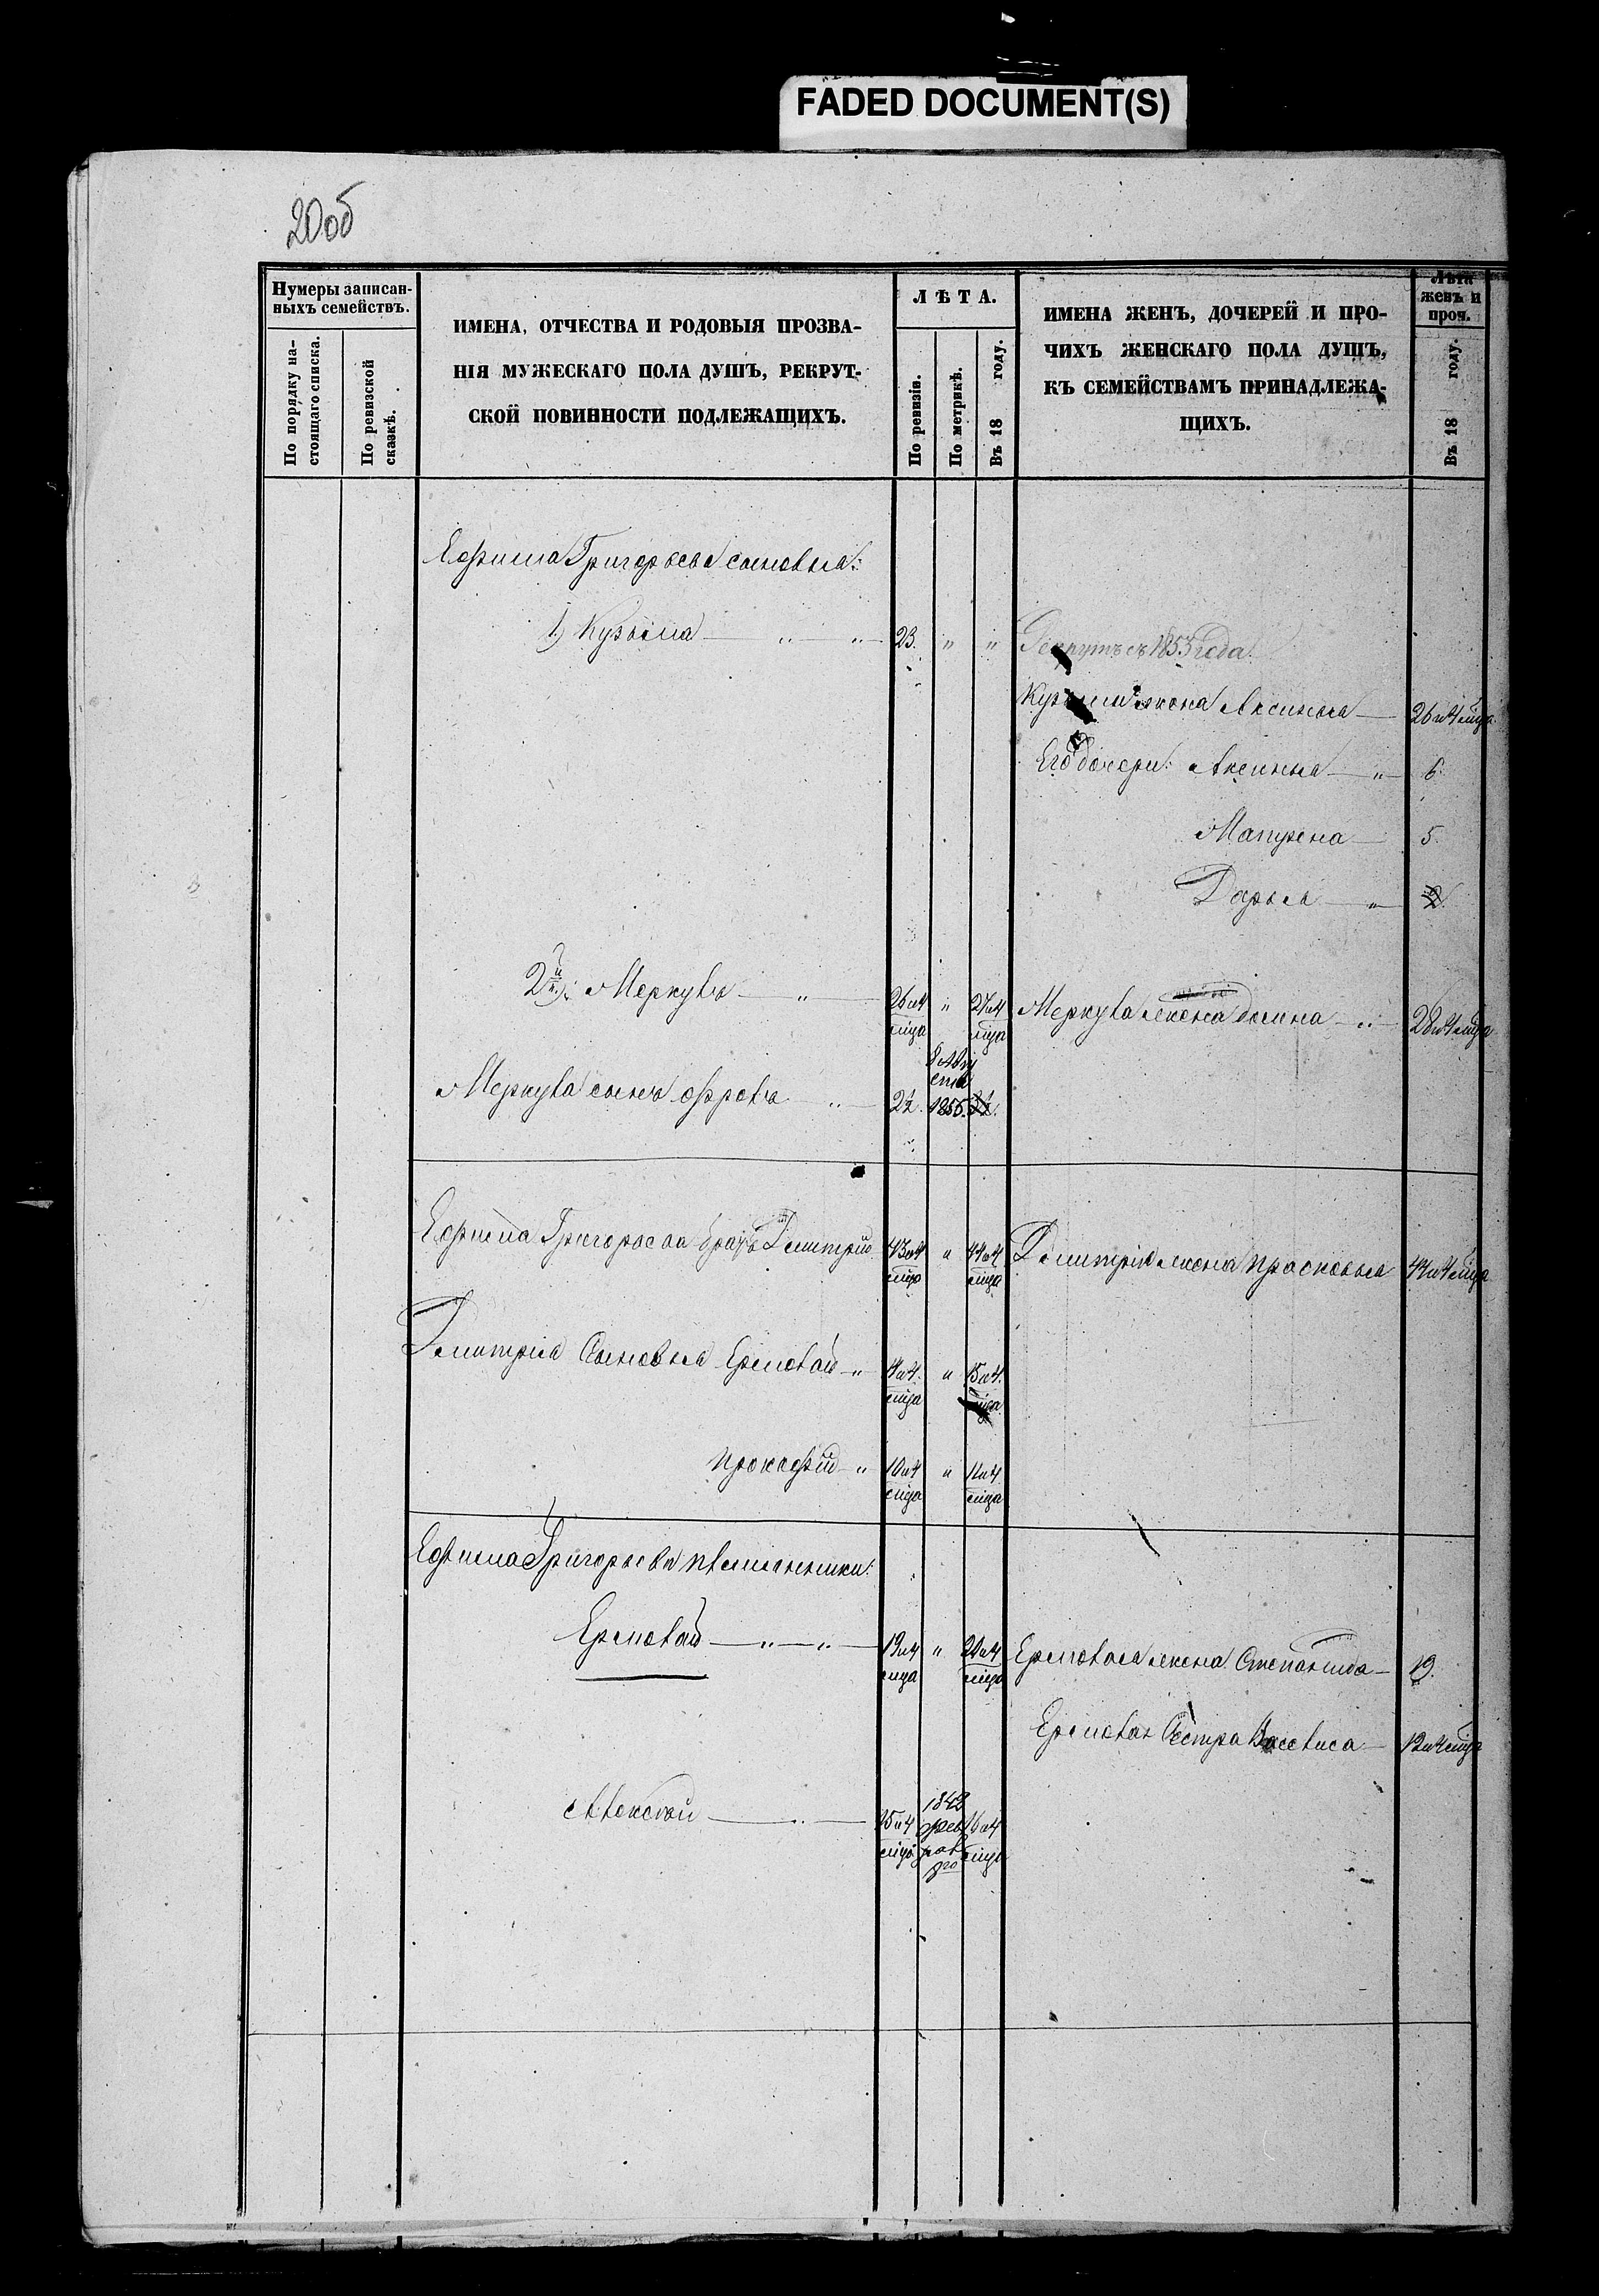 FADED DOCUMENT(S)
20об
Нумеры записан-
ныхъ семействъ.
По порядку на-
стоящаго списка.
По ревизской
сказкѣ.
ИМЕНА, ОТЧЕСТВА И РОДОВЫЯ ПРОЗВА-
НІЯ МУЖЕСКАГО ПОЛА ДУШЪ, РЕКРУТ-
СКОЙ ПОВИННОСТИ ПОДЛЕЖАЩИХЪ.
ЛѢТА.
По ревизіи.
По метрикѣ.
Въ 18 году.
ИМЕНА ЖЕНЪ, ДОЧЕРЕЙ И ПРО-
ЧИХЪ ЖЕНСКАГО ПОЛА ДУШЪ,
КЪ СЕМЕЙСТВАМЪ ПРИНАДЛЕЖА-
ЩИХЪ.
Лѣта
женъ и
проч.
Въ 18 году.
Ефима Григорьева сыновья:
1) Кузьма 23. " " Рекрутъ съ 1853 года.
Кузьмы жена Аксинья 26 и 4 мца
Его дочери: Аксинья " 6.
Матрена 5.
Дарья " 2.
2й: Меркулъ " 26 и 4 мца " 27 и 4 мца Меркула жена 28 и 4 мца
Меркула сынъ Фролъ 2½. 1856.
Ефима Григорьева братъ Дмитрій 43 и 4 мца " 44 и 4 мца Дмитрія жена Прасковья 44 и 4 мца
Дмитрія Сыновья Ермолай " 14 и 4 мца " 15 и 4 мца
Прокофій " 10 и 4 мца " 11 и 4 мца
Ефима Григорьева племянники:
Ермолай 19 и 4 мца " 20 и 4 мца Ермолая жена Степанида 19.
Ермолая Сестра Васса 12 и 4 мца
Алексѣй 15 и 4 мца 1843 фев 16 и 4 мца